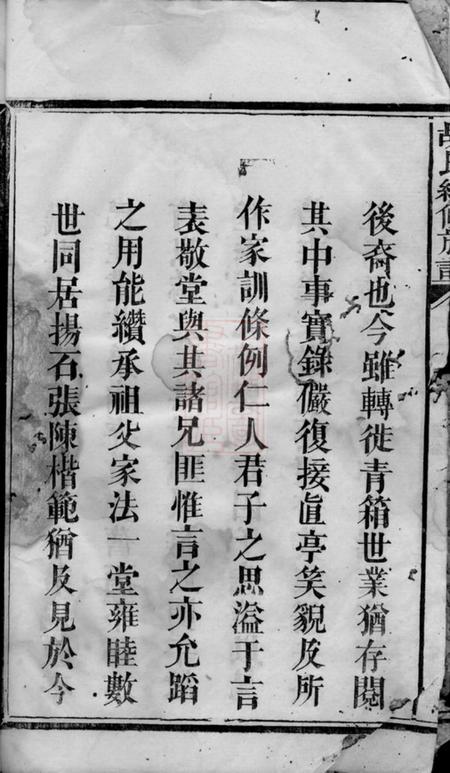 後裔也今雖轉徙青箱世業猶存閱
其中事實錄儼復接眞亭笑貌及所
作家訓條例仁人君子之思溢于言
表敬堂與其諸兄匪惟言之亦允蹈
之用能纘承祖父家法一堂雍睦數
世同居揚石張陳楷範猶及見於今